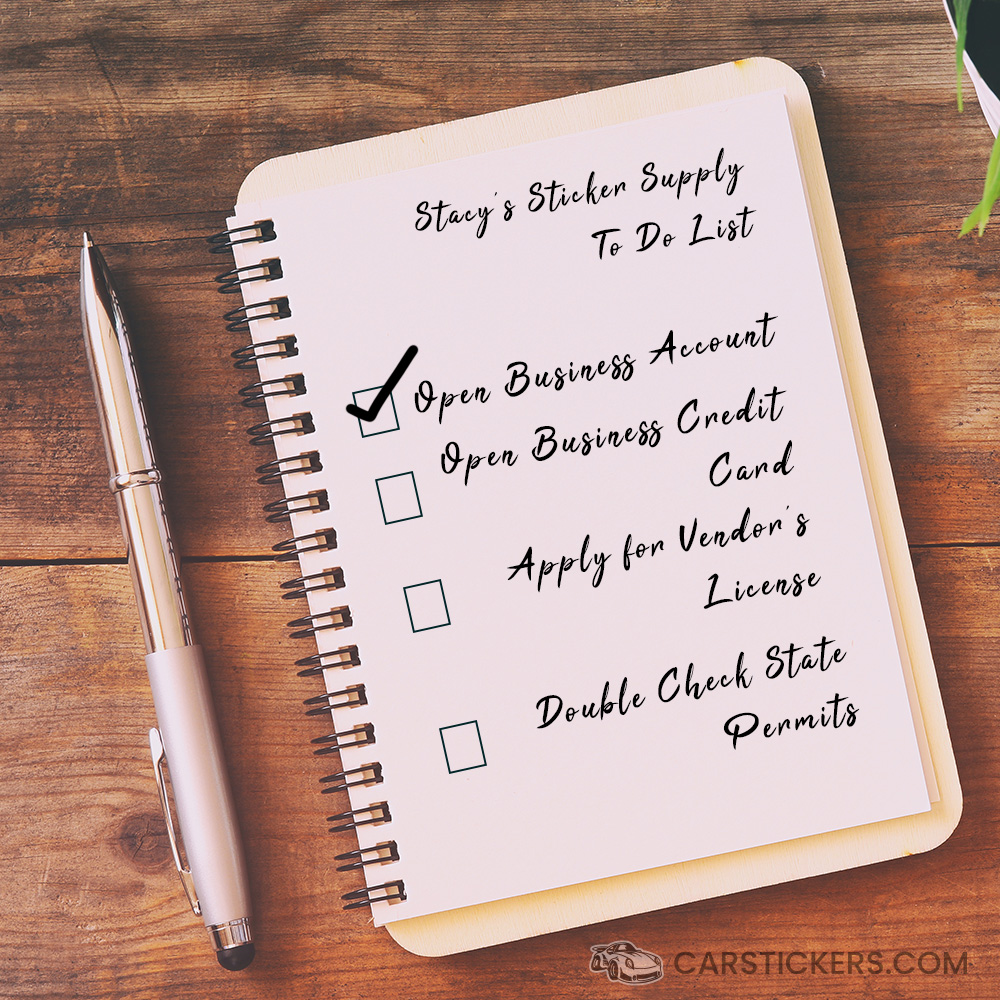 Stacy's Sticker Supply
To Do List
Open Business Account
Open Business Credit
Card
Apply for Vendor's
License
Double Check State
Permits
CARSTICKERS.COM